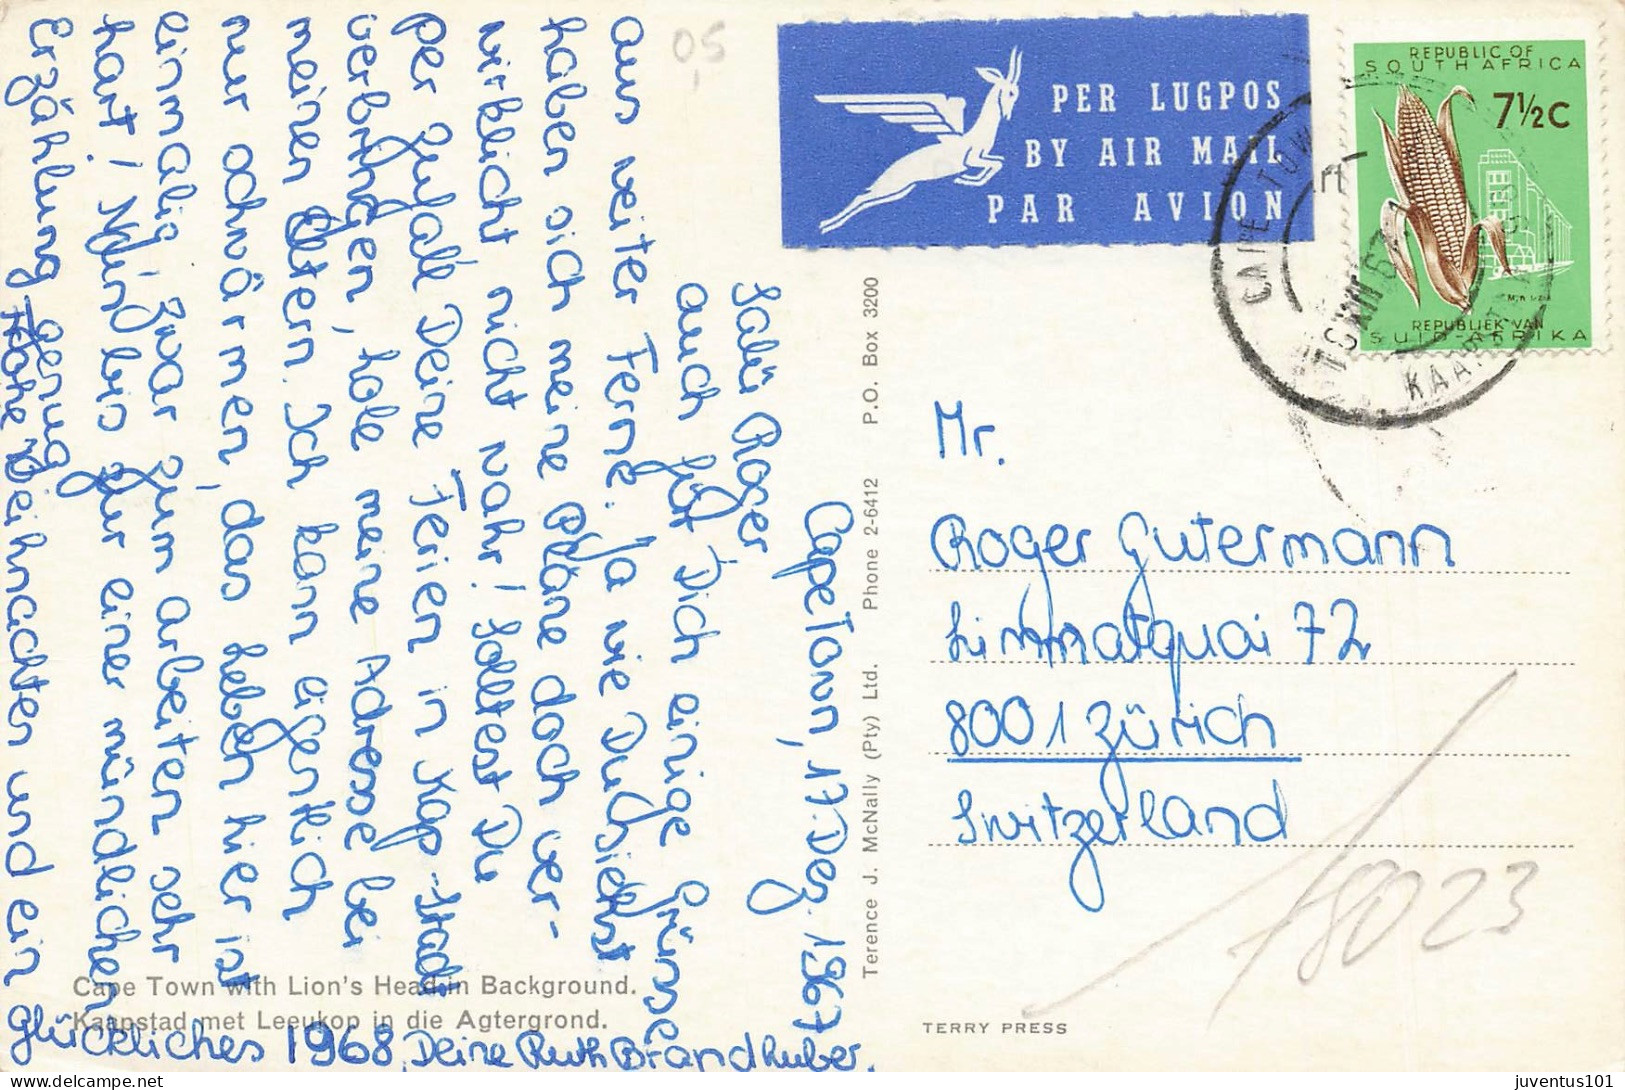 Cape Town, 17. Dez. 1967
Salü Roger
auch für Dich einige Grüsse
aus weiter Ferne. Ja wie Du siehst
haben sich meine Pläne doch ver-
wirklicht nicht wahr! Solltest Du
per Zufall Deine Ferien in Kap-Stadt
verbringen, hole meine Adresse bei
meinen Eltern. Ich kann eigentlich
nur schwärmen, das Leben hier ist
einmalig zwar zum arbeiten sehr
hart! Nun bis zur einer mündlichen
Erzählung genug
Frohe Weihnachten und ein
glückliches 1968, Deine Ruth Brandhuber.
Cape Town with Lion's Head in Background.
Kaapstad met Leeukop in die Agtergrond.
Terence J. McNally (Pty) Ltd. Phone 2-6412 P.O. Box 3200
TERRY PRESS
0,5
PER LUGPOS
BY AIR MAIL
PAR AVION
REPUBLIC OF
SOUTH AFRICA
7½c
REPUBLIEK VAN
SUID-AFRIKA
CAPE TOWN
Mr.
Roger Gutermann
Limmatquai 72
8001 Zürich
Switzerland
18023
juventus101